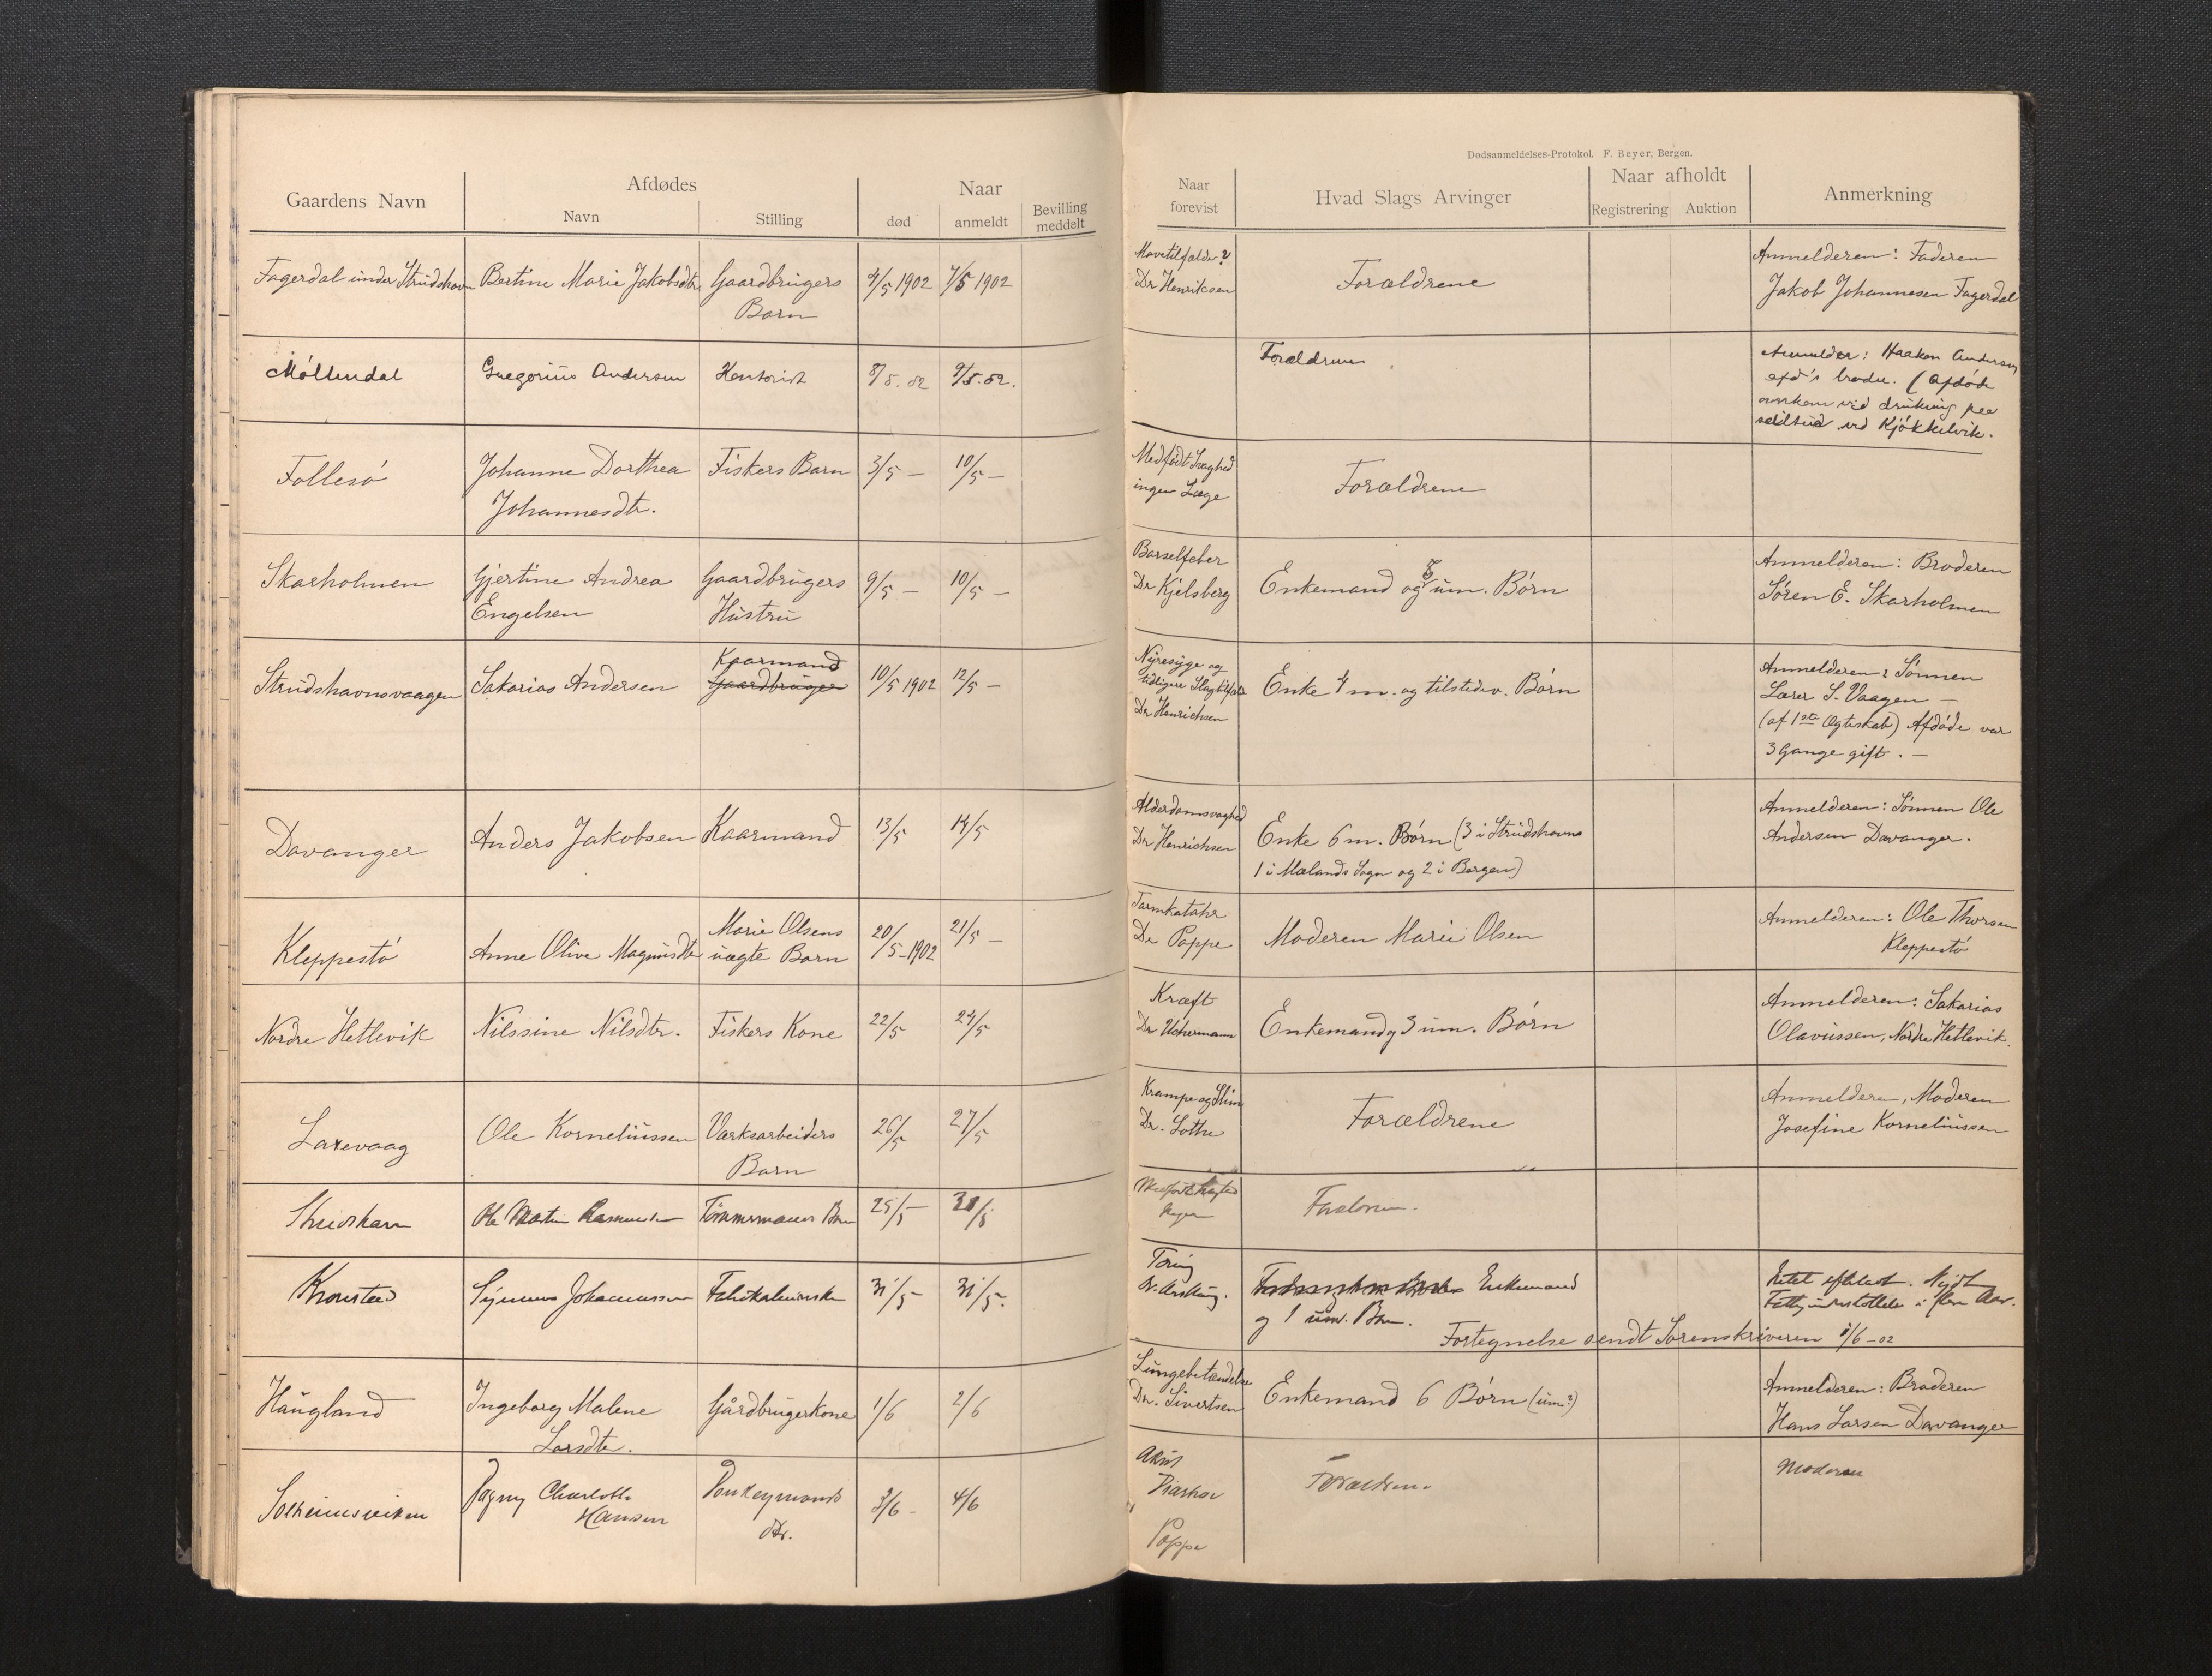 Dødsanmeldelses-Protokol. F. Beyer, Bergen.
Gaardens Navn
Afdødes
Navn
Stilling
Naar
død
anmeldt
Bevilling
meddelt
Naar
forevist
Hvad Slags Arvinger
Naar afholdt
Registrering
Auktion
Anmerkning
Fagerdal under Strudshavn Bertine Marie Jakobsdtr. Gaardbrugers 4/5 1902 7/5 1902
Barn
Mavetilfælde?
Dr Henriksen
Forældrene
Anmelderen: Faderen
Jakob Johannesen Fagerdal
Möllendal Gregorius Andersen Kontorist 8/5.02 9/5.02.
Forældrene
Anmelder: Haakon Andersen
afd's broder. (Afdöde
omkom ved drukning paa
seiltur ved Kjökkelvik.
Follesö Johanne Dorthea Fiskers Barn 3/5 – 10/5 –
Johannesdtr.
Medfødt Svaghed
ingen Læge
Forældrene
Skarholmen Gjertine Andrea Gaardbrugers 9/5 – 10/5 –
Engelsen Hustru
Barselfeber
Dr Kjelsberg
Enkemand og 5 um. Børn
Anmelderen: Broderen
Søren E. Skarholmen
Strudshavnsvaagen Sakarias Andersen Kaarmand Gaardbruger 10/5 1902 12/5 –
Nyresyge og
tidligere Slagtilfæld
Dr Henrichsen
Enke 4 m. og tilstedev. Børn
Anmelderen: Sønnen
Lærer S. Vaagen –
(af 1ste Ægteskab) Afdøde var
3 Gange gift. –
Davanger Anders Jakobsen Kaarmand 13/5 14/5
Alderdomsvaghed
Dr Henrichsen
Enke 6 m. Børn (3 i Strudshavn
1 i Mælands Sogn og 2 i Bergen)
Anmelderen: Sønnen Ole
Andersen Davanger.
Kleppestö Anne Olive Magnusdtr Marie Olsens 20/5-1902 21/5 –
uægte Barn
Tarmkatahr
Dr Poppe
Moderen Marie Olsen
Anmelderen: Ole Thorsen
Kleppestö
Nordre Hetlevik Nilssine Nilsdtr. Fiskers Kone 22/5 24/5
Kræft
Dr Uchermann
Enkemand og 3 um. Børn
Anmelderen: Sakarias
Olavussen, Nordre Hetlevik.
Laxevaag Ole Korneliussen Værksarbeiders 26/5 27/5
Barn
Krampe og Slim
Dr. Lothe
Forældrene
Anmelderen, Moderen
Josefine Korneliussen
Strudshavn Ole Martin Rasmussen Tömmermands Barn 25/5
Medfødt Svaghed
Ingen
Forældrene.
Kronstad Johannessen 31/5 31/5.
Tæring
Enkemand
og 1 um. Barn.
Intet efterladt. Nydt
Fattigunderstöttelse i flere Aar.
Fortegnelse sendt Sorenskriveren /6-02
Haugland Ingeborg Malene Gårdbrugerkone 1/6 2/6
Larsdtr.
Lungebetændelse
Dr. Sivertsen
Enkemand 6 Børn (um?)
Anmelderen: Broderen
Hans Larsen Davanger
Solheimsviken Dagny Charlotte Donkeymands 3/6 - 4/6
Hansen dtr.
Akut
Diarhoe
Poppe
Forældrene
Moderen